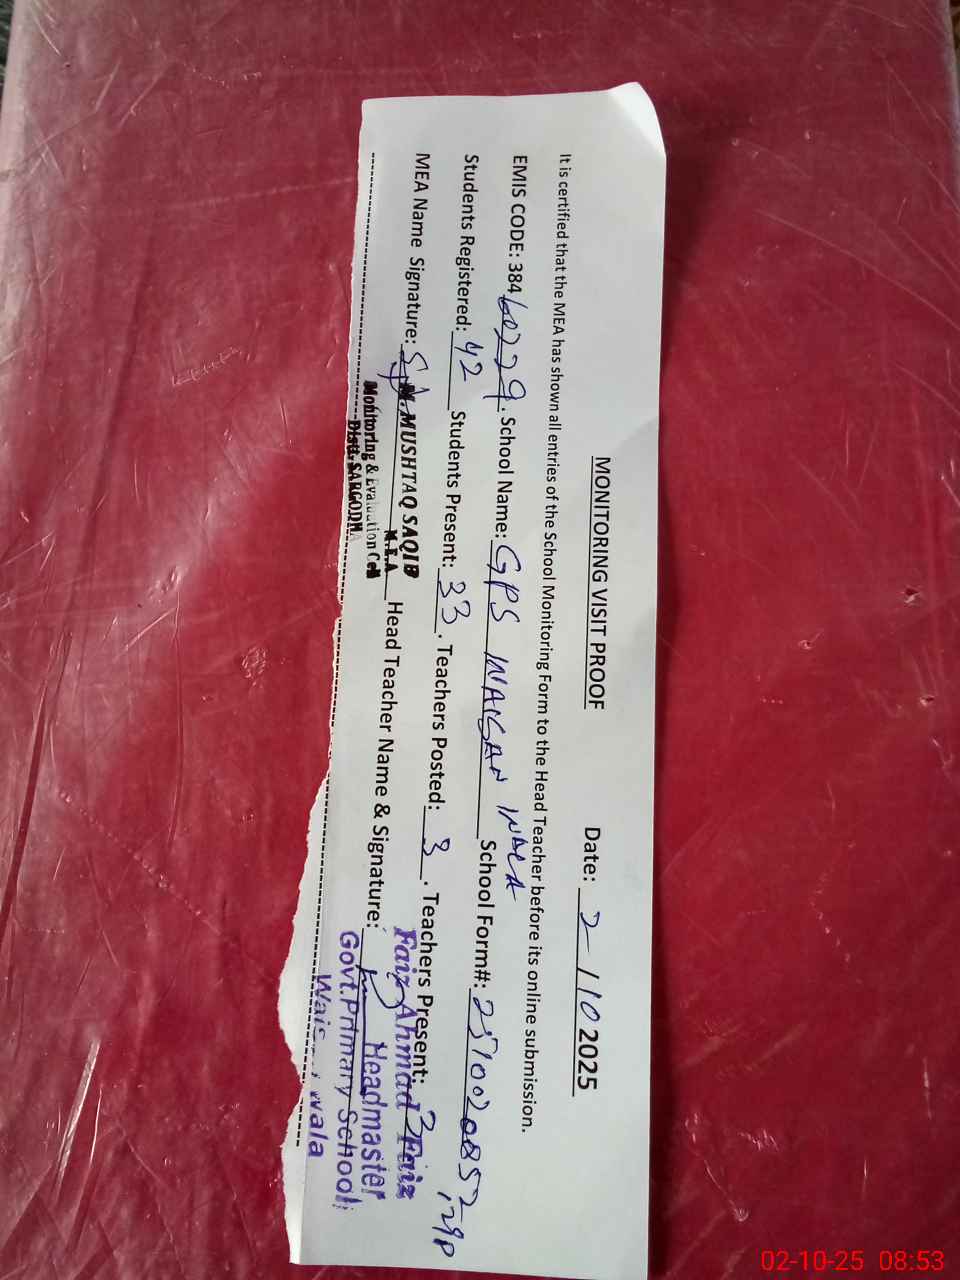 MONITORING VISIT PROOF Date: 2/10 2025
It is certified that the MEA has shown all entries of the School Monitoring Form to the Head Teacher before its online submission.
EMIS CODE: 384 60229. School Name: GPS WAISAN WALA School Form#: 2510020852
Students Registered: 42 Students Present: 33. Teachers Posted: 3. Teachers Present: 3
MEA Name Signature: M. MUSHTAQ SAQIB Head Teacher Name & Signature: Faiz Ahmad Faiz
M.E.A
Monitoring & Evaluation Cell
Distt. SARGODHA
Headmaster
Govt.Primary School,
wala
02-10-25 08:53